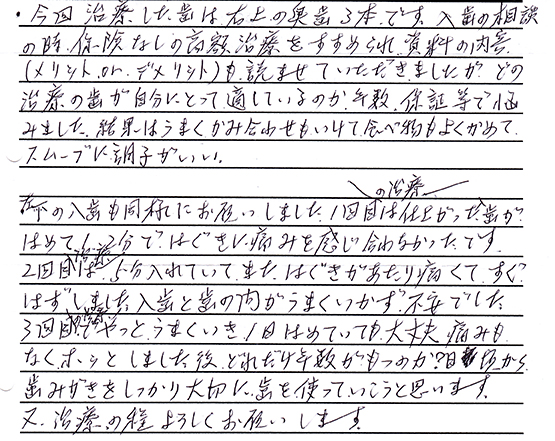 ・今回治療した歯は右上の奥歯3本です。入歯の相談
の時、保険なしの高額治療をすすめられ、資料の内容
(メリット.or.デメリット)も読ませていただきましたが、どの
治療の歯が自分にとって適しているのか、年数、保証等で悩
みました。結果はうまくかみ合わせもいけて、食べ物もよくかめて、
スムーズに調子がいい。
の治療
左下の入歯も同様にお願いしました。1回目は仕上がった入歯が
はめて1、2分で、はぐきに痛みを感じ合わなかったです。
2回目治療は、5分入れていて、また、はぐきがあたり痛くて、すぐ
はずしました。入歯と歯の間がうまくいかず、不安でした。
3回目治療でやっとうまくいき、1日はめていても、大丈夫、痛みも
なくホッとしました。後、どれだけ年数がもつのか?日頃から
歯みがきをしっかり大切に、歯を使っていこうと思います。
又、治療の程よろしくお願いします。